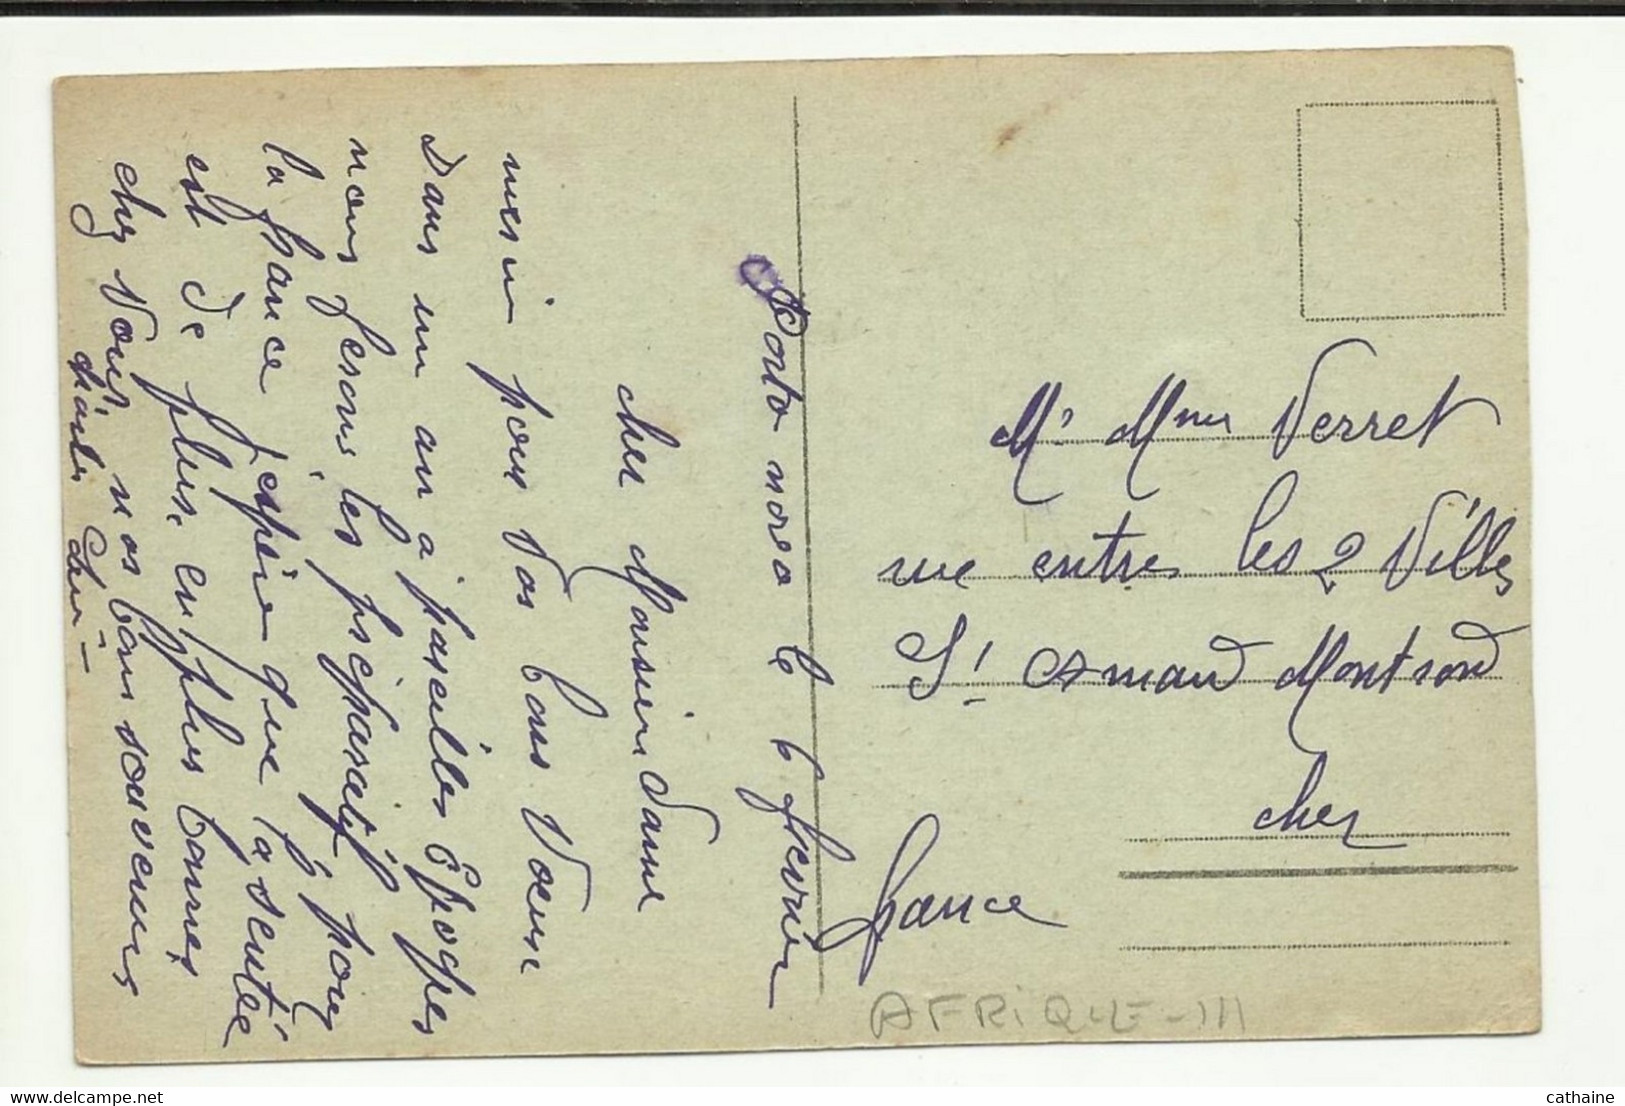 Porto novo le 6 fevrier
cher Monsieur Dame
mersin pour Vos bons Vœux
Dans un an a pareilles Epoques
nous fesons les preparatif pour
la france j'espère que la sentée
est de plus en plus bonnes
chez Vous, nos bons souvenirs
Mr Mme Verret
rue entres les 2 Villes
St Amand Montrond
cher
france
AFRIQUE - III
cathaine